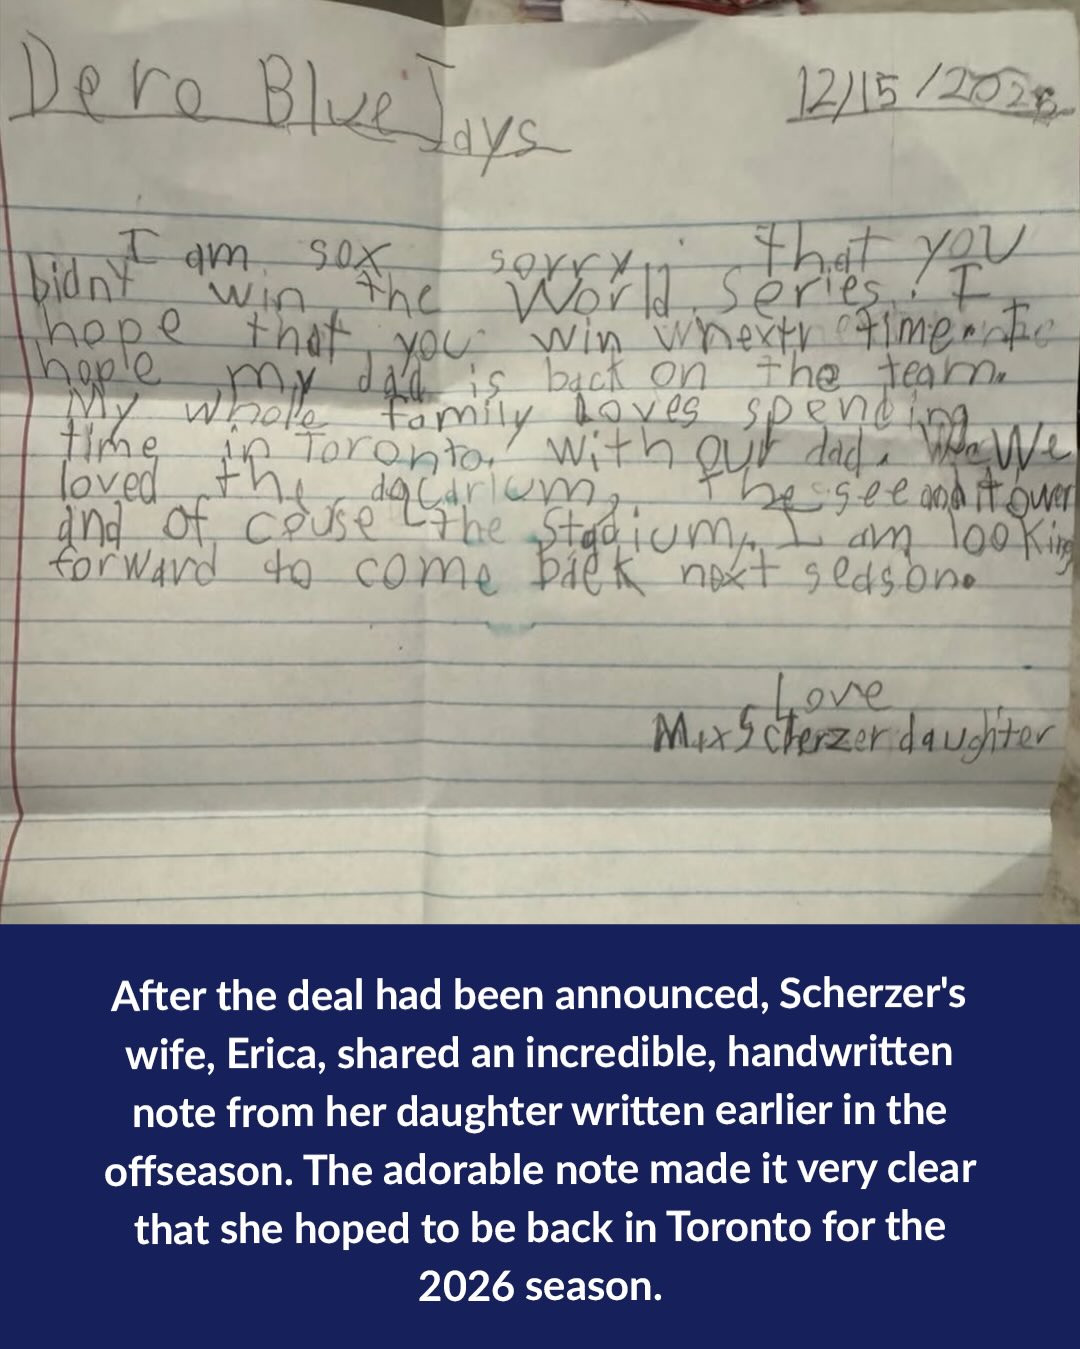 Dero Blue Jays
12/15/2025
I am sox sorry that you
bidnt win the World series. I
hope that you win whextr time. I
hople my dad is back on the team.
My whole family loves spending
time in Toronto. with our dad. We
loved the aqcarium, the see and it over
and of couse the stadium. I am looking
forward to come back next season.
Love
Max Scherzer daughter
After the deal had been announced, Scherzer's
wife, Erica, shared an incredible, handwritten
note from her daughter written earlier in the
offseason. The adorable note made it very clear
that she hoped to be back in Toronto for the
2026 season.